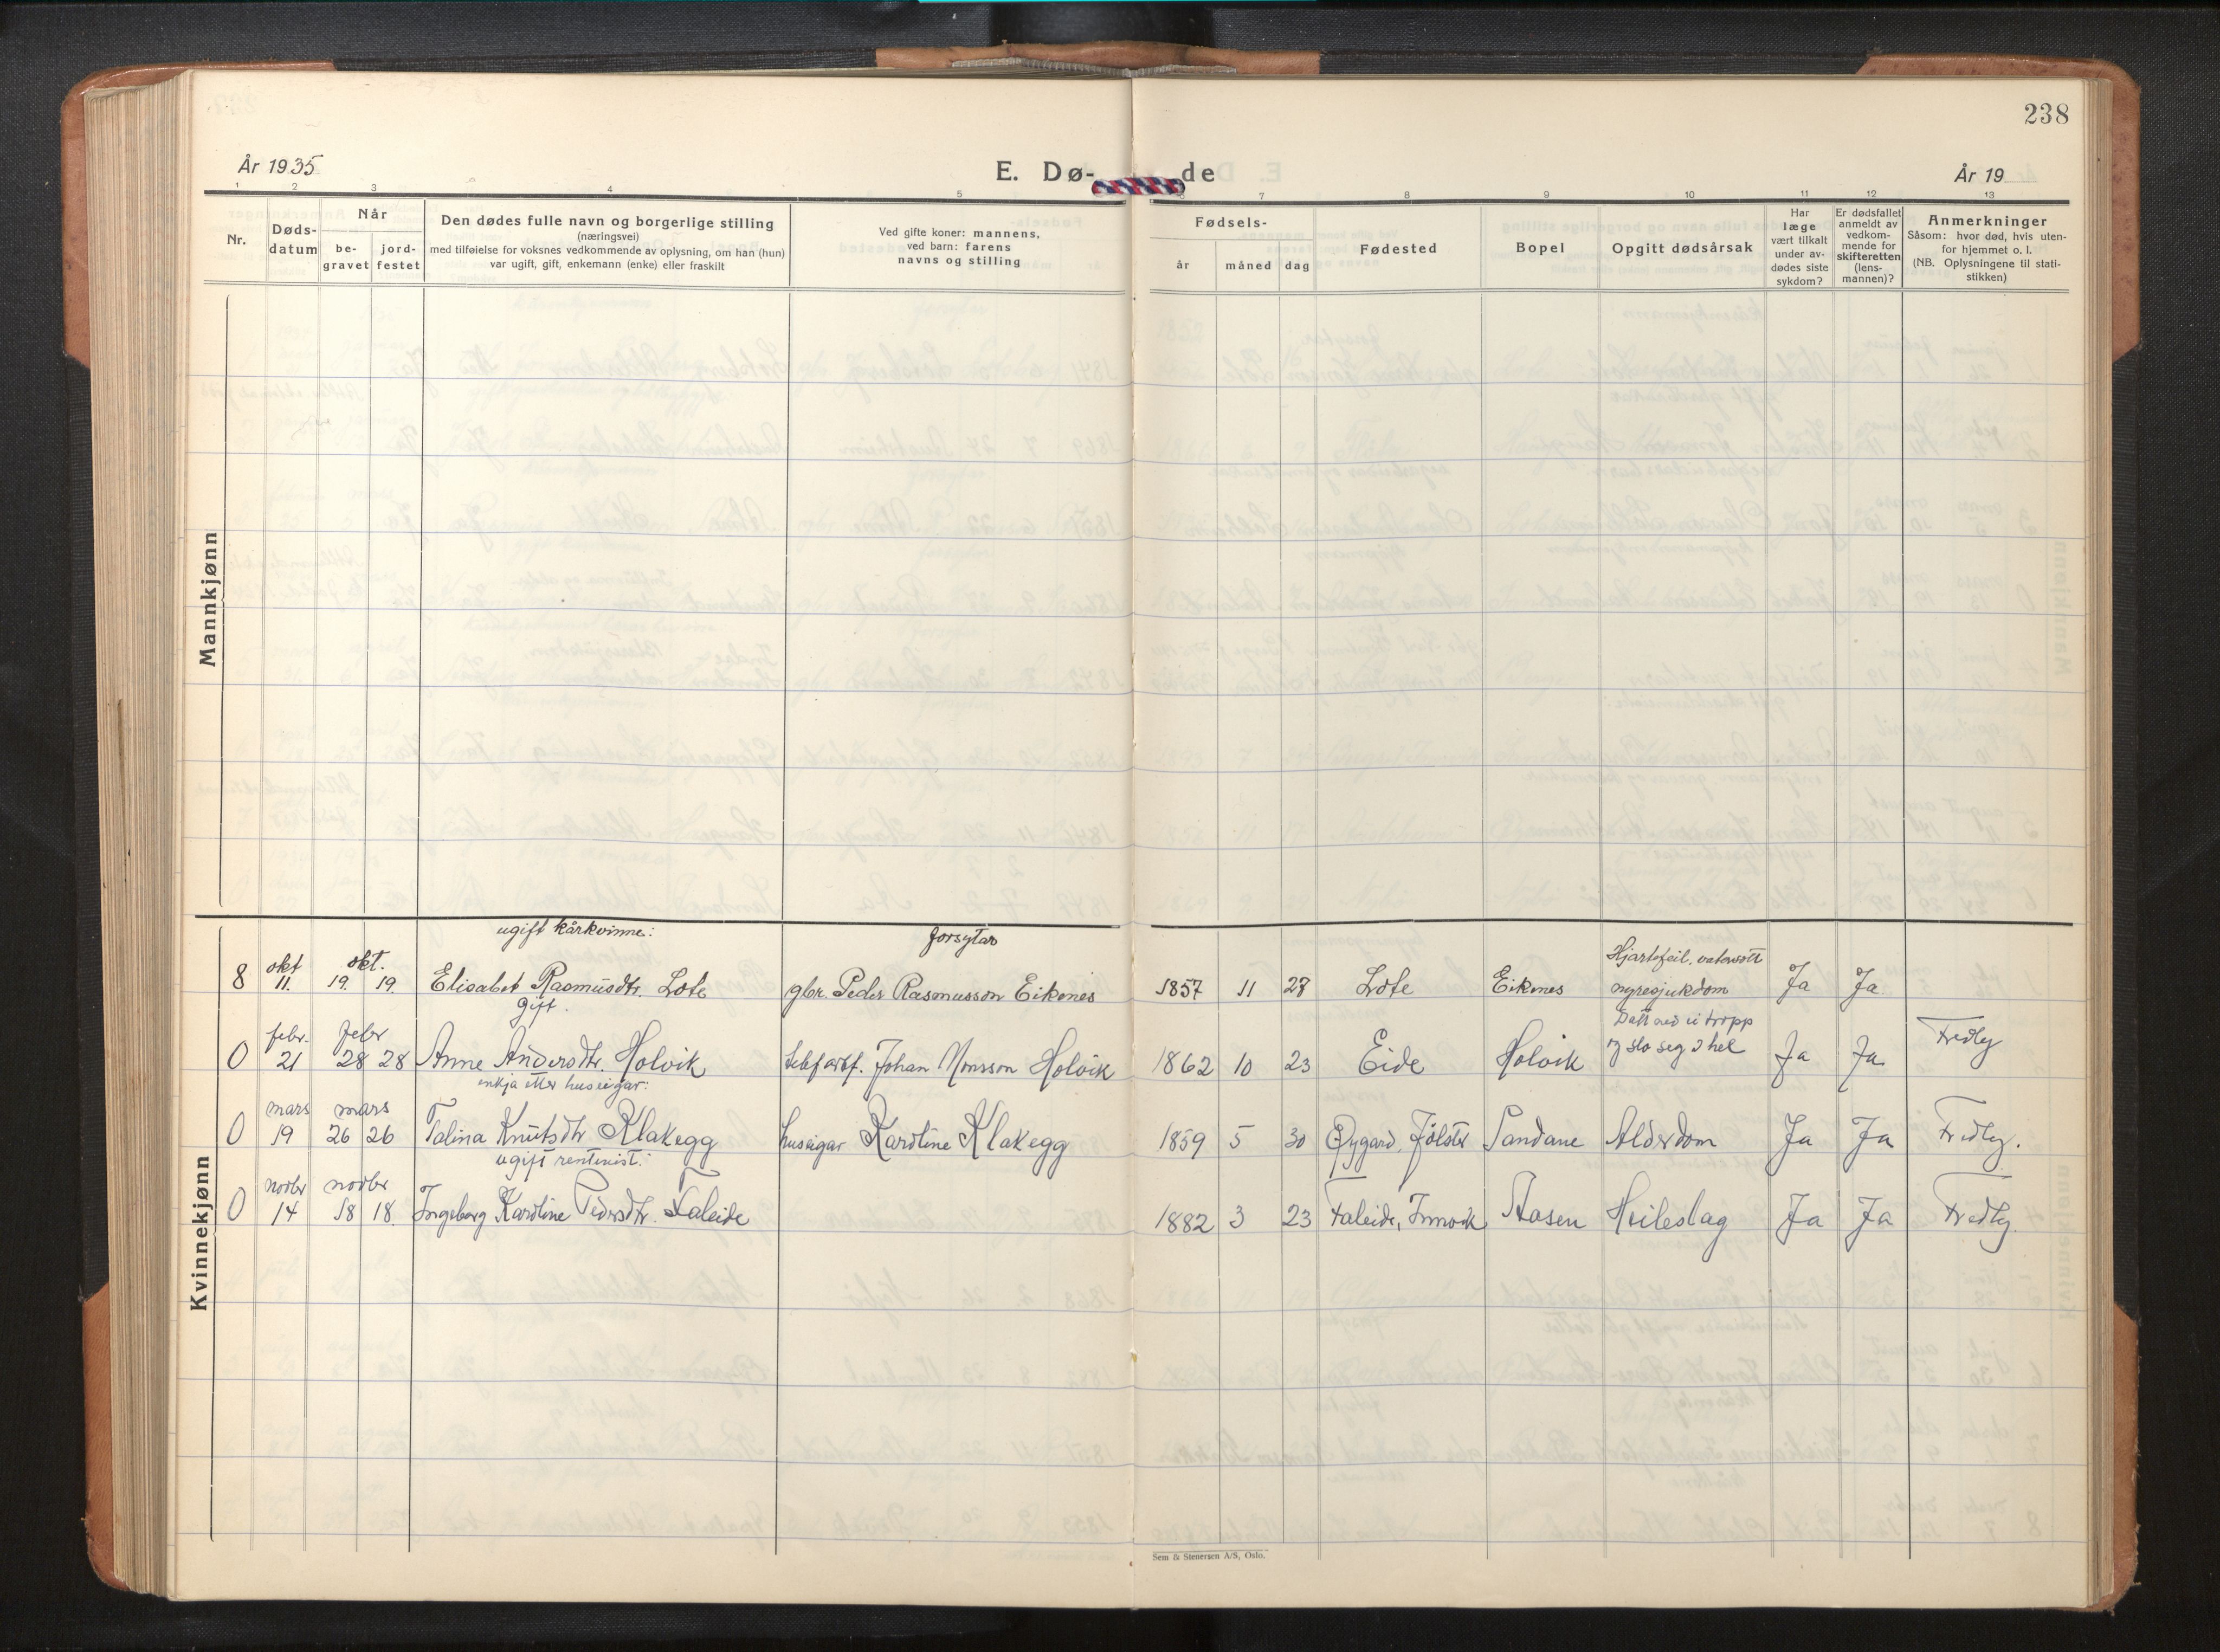 238
År 1935
E. Dø-
de
År 19
1 2 3 4 5 6 7 8 9 10 11 12 13
Nr.
Døds-
datum
Når
be-
gravet
jord-
festet
Den dødes fulle navn og borgerlige stilling
(næringsvei)
med tilføielse for voksnes vedkommende av oplysning, om han (hun)
var ugift, gift, enkemann (enke) eller fraskilt
Ved gifte koner: mannens,
ved barn: farens
navns og stilling
Fødsels-
år
måned
dag
Fødested
Bopel
Opgitt dødsårsak
Har
læge
vært tilkalt
under av-
dødes siste
sykdom?
Er dødsfallet
anmeldt av
vedkom-
mende for
skifteretten
(lens-
mannen)?
Anmerkninger
Såsom: hvor død, hvis uten-
for hjemmet o. l.
(NB. Oplysningene til stati-
stikken)
Mannkjønn
Kvinnekjønn
ugift kårkvinne:
forsytar
okt okt. Hjartefeil, vatersott
8 11. 19. 19. Elisabet Rasmusdtr. Lote gbr. Peder Rasmusson Eikenes 1857 11 27 Lote Eikenes nyresjukdom Ja Ja
gift
Datt ned ei tropp
febr. febr og slo seg i hel
0 21 28 28 Anne Andersdtr. Holvik Johan Monsson Holvik 1862 10 23 Eide Holvik Ja Ja Fredly
enkja etter huseigar:
mars mars
0 19 26 26 Talina Knutsdtr Klakegg huseigar Karoline Klakegg 1859 5 30 Øygard, Jølster Sandane Alderdom Ja Ja Fredly.
ugift rentenist:
novbr novbr
0 14 18 18. Ingeborg Karoline Pedersdtr. Faleide 1882 3 23 Faleide, Innvik Aasen Heileslag Ja Ja Fredly.
Sem & Stenersen A/S, Oslo.